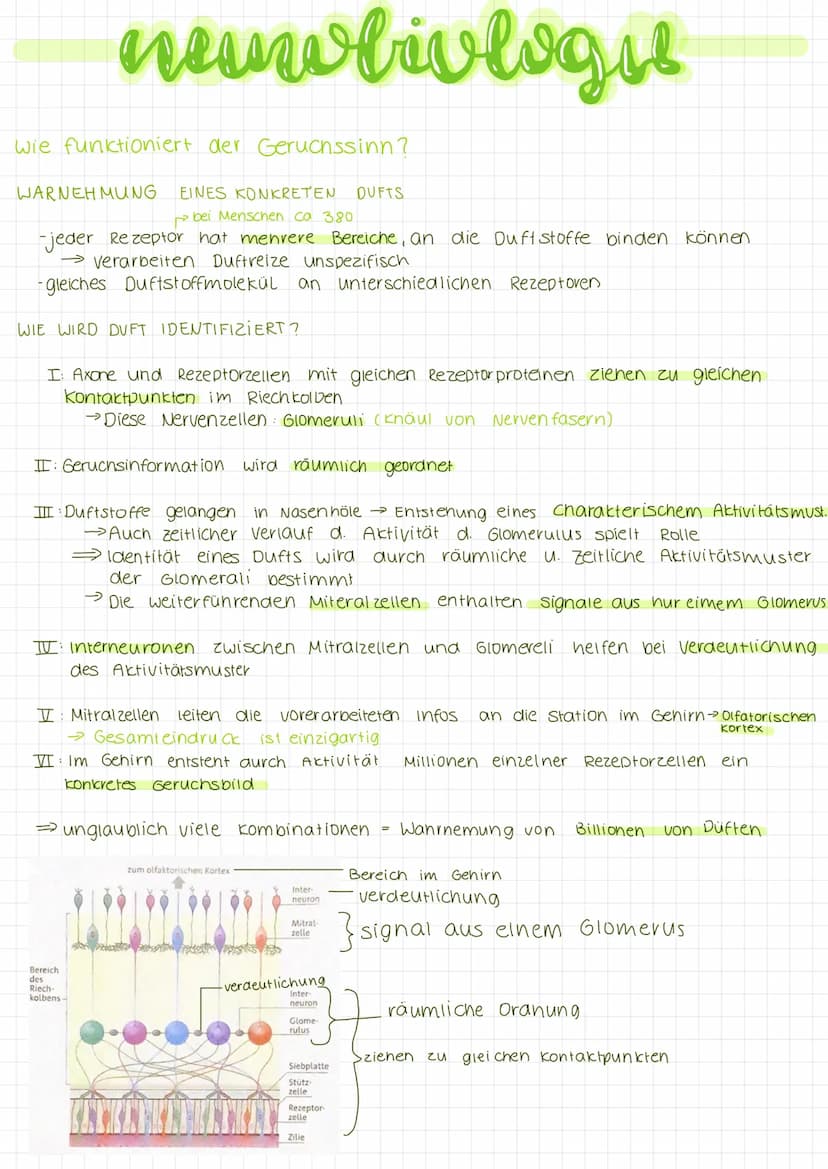 neurobiologie
Wie funktioniert der Geruchssinn?
WARNEHMUNG EINES KONKRETEN DUFTS
→ bei Menschen ca 380
-jeder Rezeptor hat mehrere Bereiche, an die Duftstoffe binden können
→ verarbeiten Duftreize unspezifisch
-gleiches Duftstoffmolekül an unterschiedlichen Rezeptoren
WIE WIRD DUFT IDENTIFIZIERT?
I: Axone und Rezeptorzellen mit gleichen Rezeptorproteinen ziehen zu gleichen
Kontaktpunkten im Riechkolben
→ Diese Nervenzellen: Glomeruli (Knäul von Nervenfasern)
II: Geruchsinformation wird räumlich geordnet
III: Duftstoffe gelangen in Nasenhöle → Entstehung eines Charakterischem Aktivitätsmust.
→ Auch zeitlicher Verlauf d. Aktivität d. Glomerulus spielt Rolle
⇒ Identität eines Dufts wird durch räumliche u. zeitliche Aktivitätsmuster
der Glomerali bestimmt
→ Die weiterführenden Miteralzellen enthalten signale aus nur eimem Glomerus
IV: Interneuronen zwischen Mitralzellen und Glomereli helfen bei Verdeutlichung
des Aktivitätsmuster
V: Mitralzellen leiten die vorerarbeiteten Infos an die Station im Gehirn → Olfatorischen
Kortex
→ Gesamteindruck ist einzigartig
VI: Im Gehirn entsteht durch Aktivität Millionen einzelner Rezeptorzellen ein
konkretes Geruchsbild
⇒ unglaublich viele Kombinationen = Wahrnemung von Billionen von Düften
zum olfaktorischen Kortex
Bereich im Gehirn
Inter-
neuron
verdeutlichung
Mitral-
zelle
signal aus einem Glomerus
Bereich
des
Riech-
kolbens
verdeutlichung
Inter-
neuron
räumliche Ordnung
Glome-
rulus
ziehen zu gleichen Kontaktpunkten
Siebplatte
Stütz-
zelle
Rezeptor-
zelle
Zilie